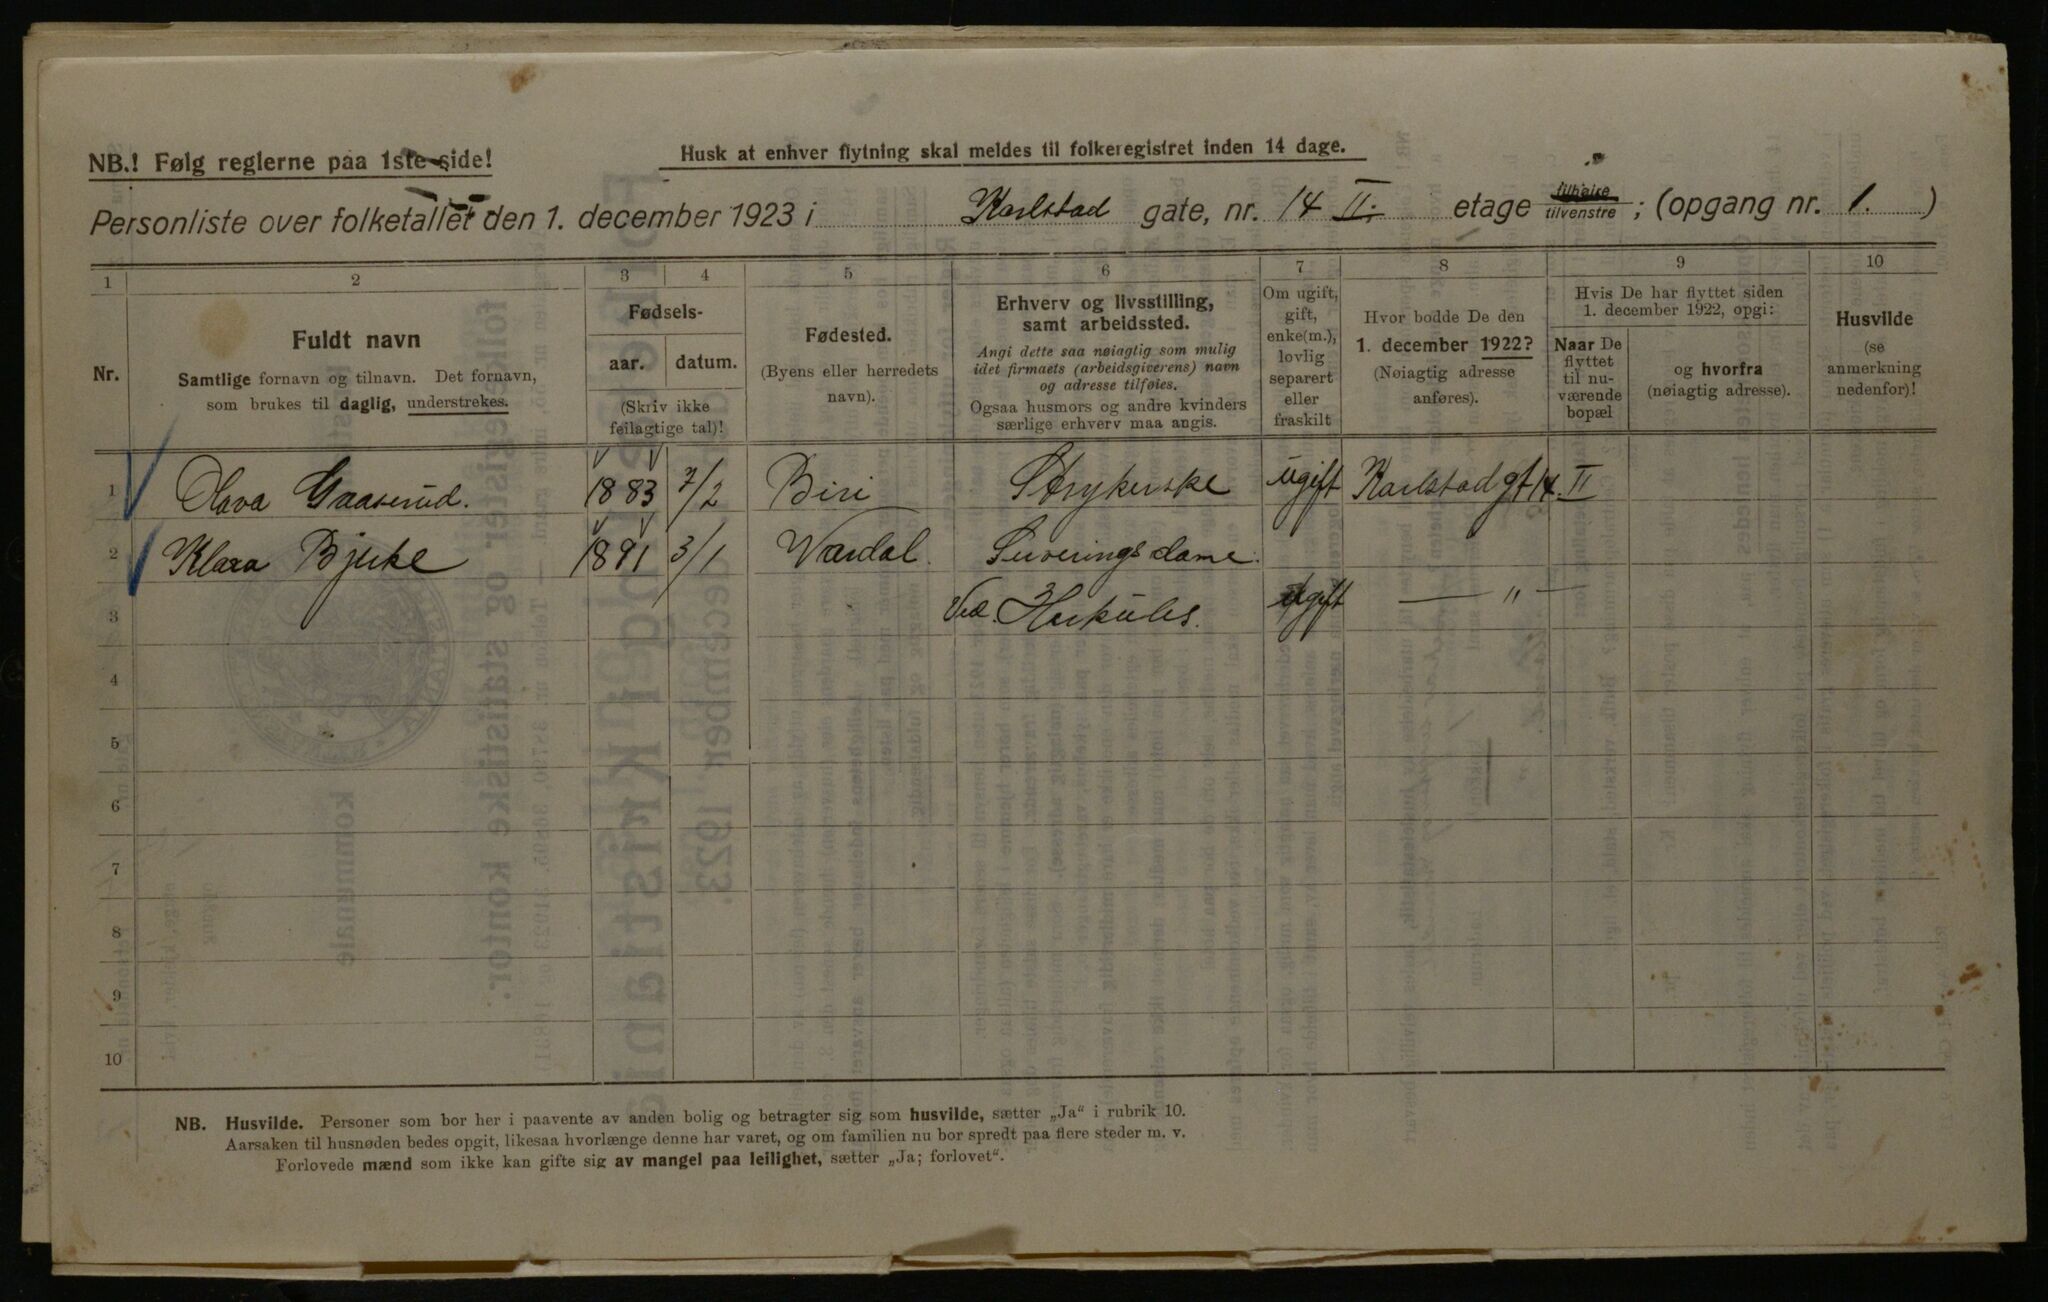 NB.! Følg reglerne paa 1ste side!
Husk at enhver flytning skal meldes til folkeregistret inden 14 dage.
Personliste over folketallet den 1. december 1923 i Karlstad gate, nr. 14 II. etage tilhøire tilvenstre ; (opgang nr. 1. )
1 2 3 4 5 6 7 8 9 10
Nr.
Fuldt navn
Samtlige fornavn og tilnavn. Det fornavn,
som brukes til daglig, understrekes.
Fødsels-
aar. datum.
(Skriv ikke
feilagtige tal)!
Fødested.
(Byens eller herredets
navn).
Erhverv og livsstilling,
samt arbeidssted.
Angi dette saa nøiagtig som mulig
idet firmaets (arbeidsgiverens) navn
og adresse tilføies.
Ogsaa husmors og andre kvinders
særlige erhverv maa angis.
Om ugift,
gift,
enke(m.),
lovlig
separert
eller
fraskilt
Hvor bodde De den
1. december 1922?
(Nøiagtig adresse
anføres).
Hvis De har flyttet siden
1. december 1922, opgi:
Naar De
flyttet
til nu-
værende
bopæl
og hvorfra
(nøiagtig adresse).
Husvilde
(se
anmerkning
nedenfor)!
1 Olava Gaaserud. 1883 7/2 Biri Strykerske ugift Karlstad gt 14 II
2 Klara Bjerke 1891 3/1 Vardal. Serveringsdame.
3 Ved. Herkules. ugift — „ —
4
5
6
7
8
9
10
NB. Husvilde. Personer som bor her i paavente av anden bolig og betragter sig som husvilde, sætter „Ja“ i rubrik 10.
Aarsaken til husnøden bedes opgit, likesaa hvorlænge denne har varet, og om familien nu bor spredt paa flere steder m. v.
Forlovede mænd som ikke kan gifte sig av mangel paa leilighet, sætter „Ja; forlovet“.